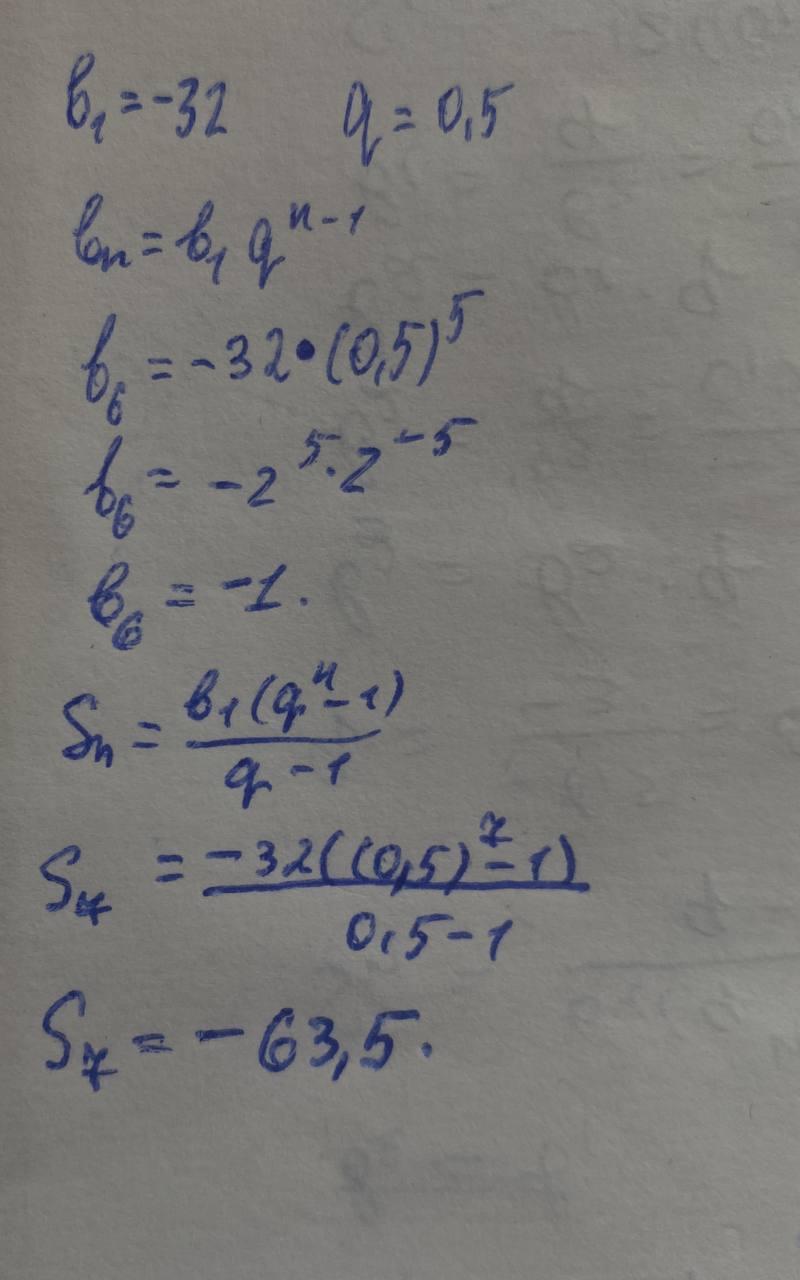 b₁ = -32 q = 0,5
bₙ = b₁ qⁿ⁻¹
b₆ = -32 • (0,5)⁵
b₆ = -2⁵ · 2⁻⁵
b₆ = -1.
Sₙ = b₁(qⁿ - 1) / q - 1
S₇ = -32((0,5)⁷ - 1) / 0,5 - 1
S₇ = -63,5.